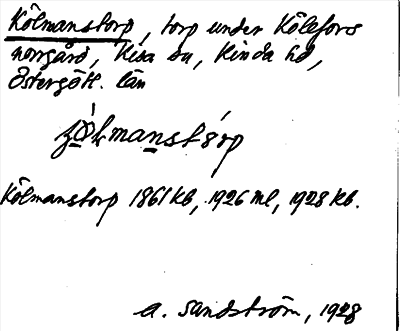 Kölmanstorp, torp under Kölefors
norrgård, Kisa sn, Kinda hd,
Östergötl. län
Kölmanstorp 1861 kb, 1926 ml, 1928 kb.
A. Sandström, 1928